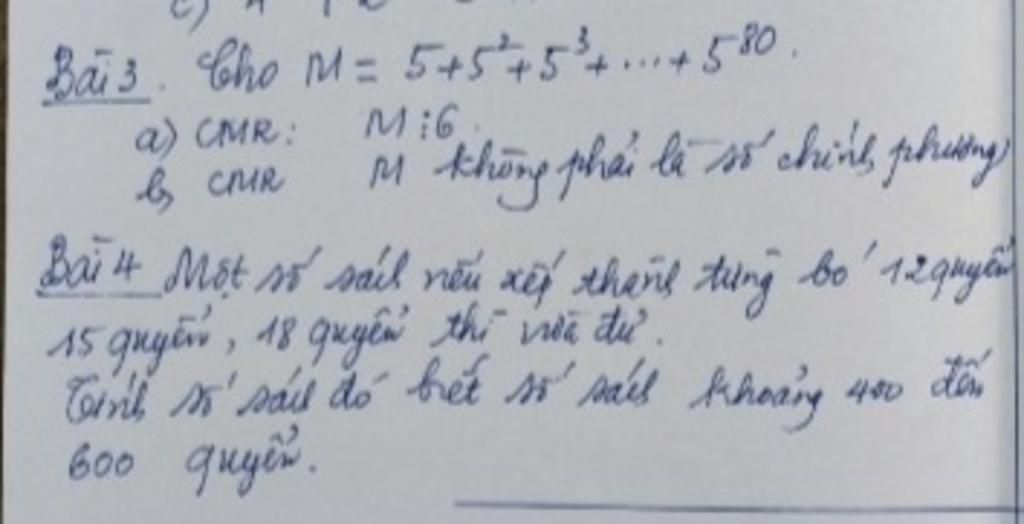 c) 4
Bài 3. Cho M = 5+5²+5³+...+5⁸⁰.
a) CMR: M ⋮ 6.
b, CMR M không phải là số chính phương
Bài 4 Một số sách nếu xếp thành từng bó 12 quyển
15 quyển, 18 quyển thì vừa đủ.
Tính số sách đó biết số sách khoảng 400 đến
600 quyển.